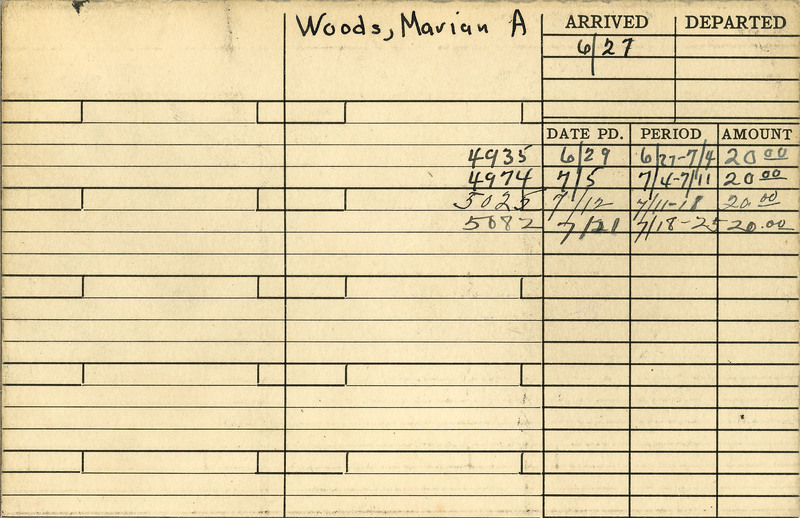 Woods, Marian A
ARRIVED DEPARTED
6/27
DATE PD. PERIOD AMOUNT
4935 6/29 6/27-7/4 20 00
4974 7/5 7/4-7/11 20 00
5025 7/12 7/11-18 20 00
5082 7/21 7/18-25 20.00